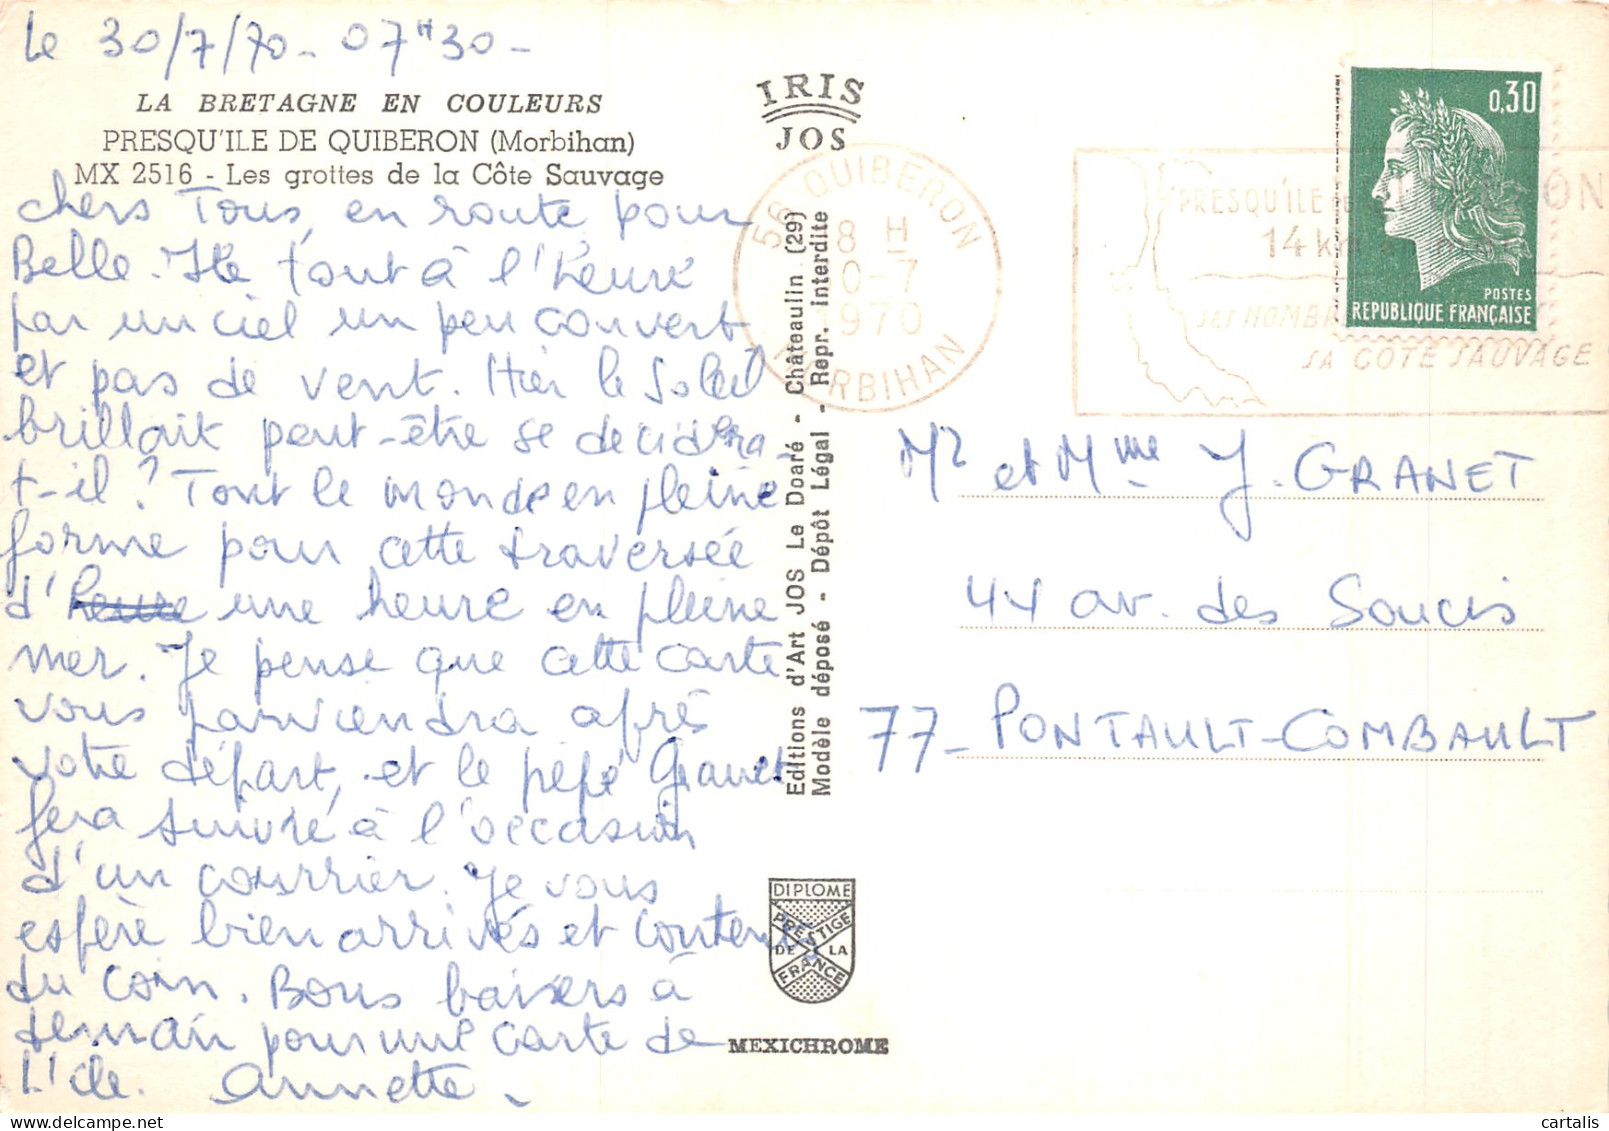 Le 30/7/70 - 07H30 -
LA BRETAGNE EN COULEURS
PRESQU'ILE DE QUIBERON (Morbihan)
MX 2516 - Les grottes de la Côte Sauvage
chers Tous, en route pour
Belle-Ile tout à l'heure
par un ciel un peu couvert
et pas de vent. Hier le Soleil
brillait peut-être se decidera-
t-il ? Tout le monde en pleine
forme pour cette traversée
d'heure une heure en pleine
mer. Je pense que cette carte
vous parviendra après
votre départ, et le pépé Granet
fera suivre à l'occasion
d'un courrier. Je vous
espère bien arrivés et contents
du coin. Bons baisers à
demain pour une carte de
L'île. Annette.
IRIS
JOS
Editions d'Art JOS Le Doaré - Châteaulin (29)
Modèle déposé - Dépôt Légal - Repr. interdite
DIPLOME
PRESTIGE
DE LA
FRANCE
MEXICHROME
56 QUIBERON
8 H
0-7
1970
MORBIHAN
PRESQU'ILE DE QUIBERON
14 km
SES
SA COTE SAUVAGE
0,30
POSTES
REPUBLIQUE FRANÇAISE
Mr et Mme J. GRANET
44 av. des Soucis
77 - PONTAULT-COMBAULT
cartalis